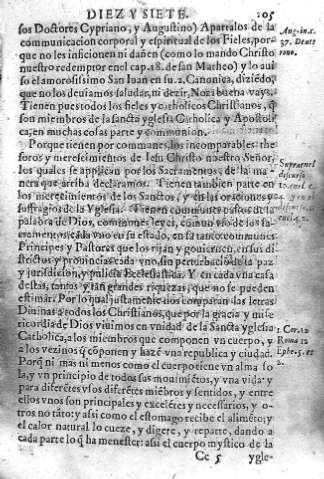 DIEZ Y SIETE. 205
sos Doctores Cypriano, y Augustino) Apartalos de la
communicacion corporal y espiritual de los Fieles, por-
que no les inficionen ni dañen (como lo mando Christo
nuestro redemptor en el cap. 18. de san Matheo) y lo aui
so el amorosissimo San Iuan en su 2. Canonica, diziẽdo,
que no los deuiamos saludar, ni dezir, Nora buena vays.
Tienen pues todos los fieles y catholicos Christianos, q̃
son miembros de la sancta yglesia Catholica y Apostoli
ca, en muchas cosas parte y communion.
Porque tienen por communes, los incomparables the
soros y merescimientos de Iesu Christo nuestro Señor,
los quales se applican por los Sacramentos, de la ma-
nera que arriba declaramos. Tienen tambien parte en
los merecimientos de los Sanctos, y en las oraciones y
suffragios de la Yglesia. Tienen communes pastos de la
palabra de Dios, communes leyes, comun vso de los sa-
cramentos, cada vno en su estado, en fin tanto communes
Principes y Pastores que los rijan y gouiernen, en sus di
strictos y prouincias cada vno, sin perturbacion de la paz
y jurisdicion, y pulicia Ecclesiastica. Y en cada vna casa
destas, tantas y tan grandes riquezas, que no se pueden
estimar. Por lo qual justamente son comparan las letras
Diuinas a todos los Christianos, que por la gracia y mise
ricordia de Dios viuimos en vnidad de la Sancta yglesia
Catholica, a los miembros que componen vn cuerpo, y
a los vezinos q̃ cõponen y hazẽ vna republica y ciudad.
Porq̃ ni mas ni menos como el cuerpo tiene vn alma so
la, y vn principio de todos sus mouimiẽtos, y vna vida y
para diferẽtes vsos diferẽtes miẽbros y sentidos, y entre
ellos vnos son principales y excelẽtes y necessarios, y o-
tros no tãto: y asi como el estomago recibe el alimẽto; y
el calor natural lo cueze, y digere, y reparte, dando a
cada parte lo q̃ ha menester: asi el cuerpo mystico de la
Cc 5 ygle-
Aug. in x.
37. Deute
rono.
Supra en el
discurso
1. Cor. 12
Roma 12
Ephe. 5. et
2.